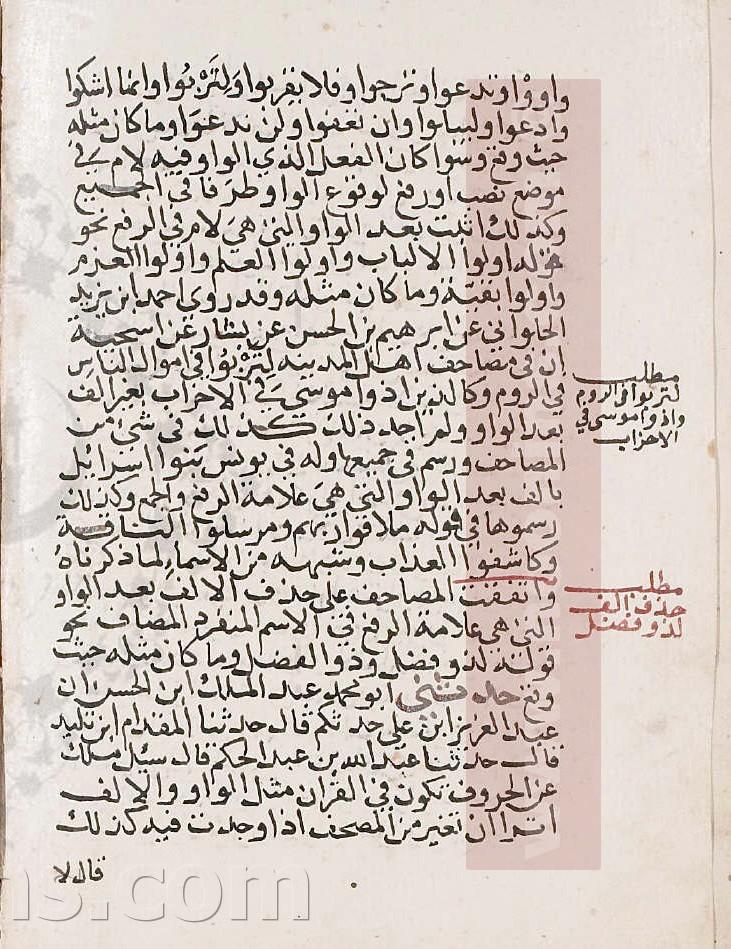 واووا وتدعوا ونرجوا فلا يربوا ولتربوا وانما اشكوا
وادعوا وليبلوا وان تعفوا ولن ندعوا وما كان مثله
حيث وقع وسوا كان الفعل الذي الواو فيه لام في
موضع نصب او رفع لوقوع الواو طرفا في الجميع
وكذلك اثبتت بعد الواو التي هي لام في الرفع نحو
قوله اولوا الالباب واولوا العلم واولوا العزم
واولوا بقية وما كان مثله وقد روى احمد ابن يزيد
الحلواني عن ابرهيم بن الحسن عن بشار عن
ان في مصاحف اهل المدينه لتربوا في اموال الناس
في الروم وكالذين اذوا موسى في الاحزاب بغير الف
بعد الواو ولم اجد ذلك كذلك في شئ من
المصاحف ورسم في جميعها وله في يونس بنوا اسرائل
بالف بعد الواو التي هي علامة الرفع والجمع وكذلك
رسموها في قوله ملاقوا ربهم ومرسلوا الناقة
وكاشفوا العذاب وشبهه من الاسماء لما ذكرناه
واتفقت المصاحف على حذف الالف بعد الواو
التي هي علامة الرفع في الاسم المنفرد المضاف نحو
قوله لذو فضل وذو الفضل وما كان مثله حيث
وقع حدثني ابو محمد عبد الملك ابن الحسن ان
عبد العزيز ابن علي حدثكم قال حدثنا المقدام ابن تليد
قال حدثنا عبد الله بن عبد الحكم قال سئل ملك
عن الحروف تكون في القران مثل الواو والالف
اترا ان تغير من المصحف اذا وجدت فيه كذلك
قال لا
مطلب
لتربوا في الروم
واذوا موسى في
الاحزاب
مطلب
حذف الف
لذو فضل
ns.com